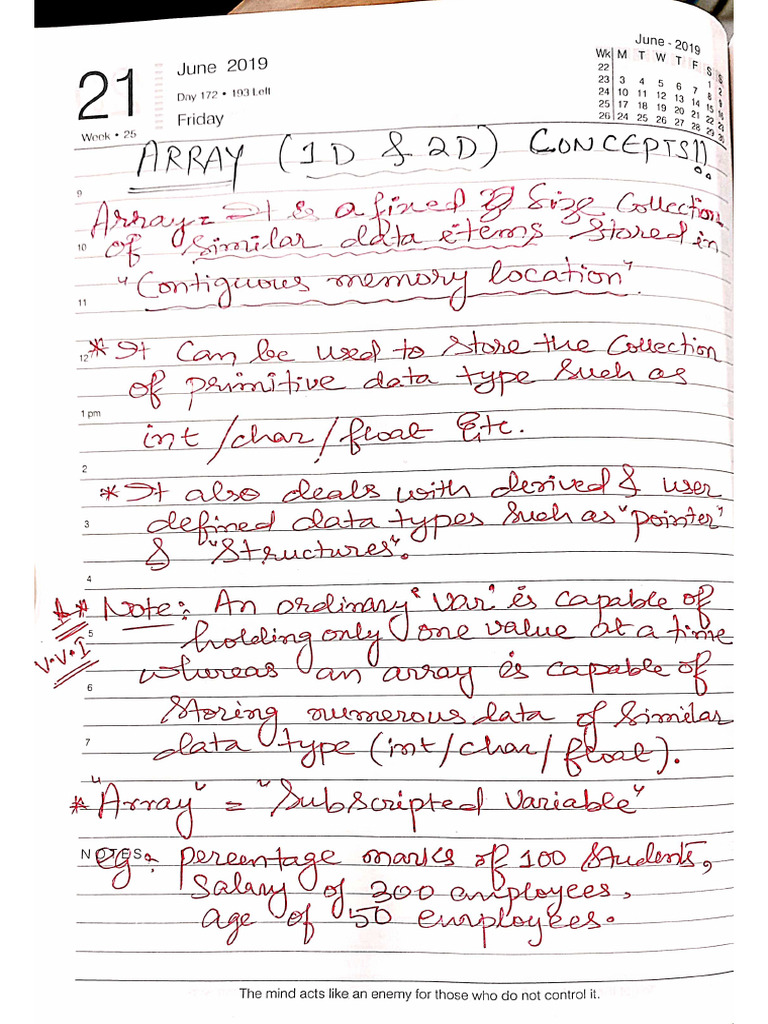 21
June 2019
Day 172 • 193 Left
Friday
Week • 25
June - 2019
Wk M T W T F S S
22 1 2
23 3 4 5 6 7 8 9
24 10 11 12 13 14 15 16
25 17 18 19 20 21 22 23
26 24 25 26 27 28 29 30
ARRAY (1D & 2D) CONCEPTS!!
9
Array = It is a fixed Size Collection
10 of similar data items stored in
"Contiguous memory location".
11
12 * It can be used to store the Collection
of primitive data type such as
1 pm
int/char/float Etc.
2
* It also deals with derived & user
3 defined data types such as "pointer"
& "Structures".
4
** Note: An ordinary "var" is capable of
5 holding only one value at a time
V.V.I
whereas an array is capable of
6
storing numerous data of similar
7 data type (int/char/float).
* "Array" = "Subscripted Variable"
NOTES
eg: percentage marks of 100 Students,
Salary of 300 employees,
age of 50 employees.
The mind acts like an enemy for those who do not control it.